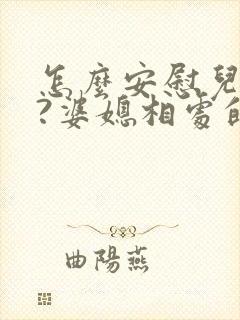 怎麼安慰兒
?婆媳相處的
曲陽燕